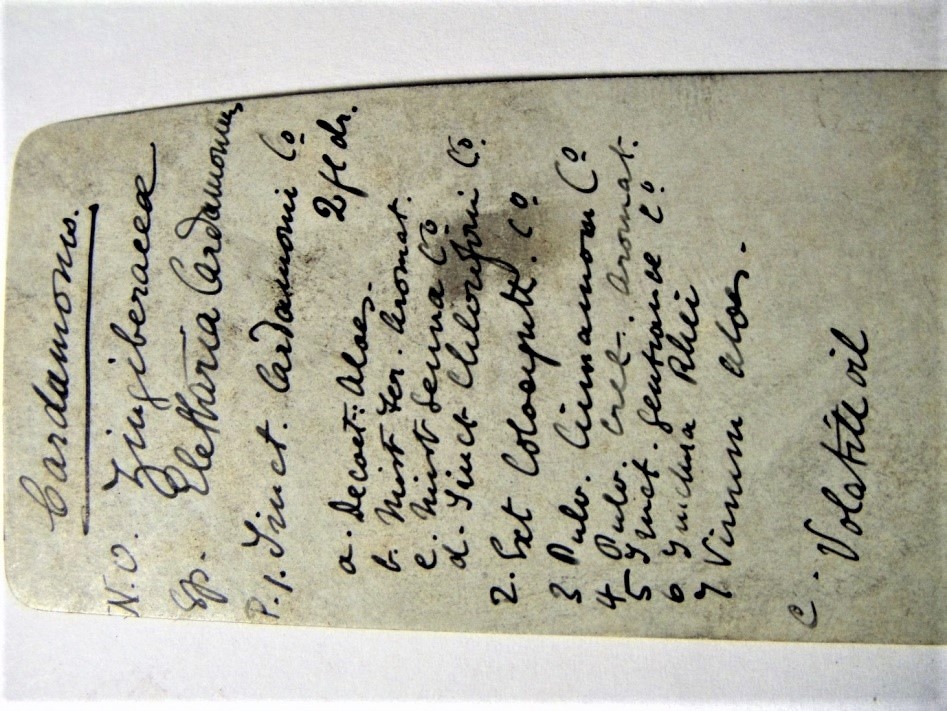 Cardamoms.
N.O. Zingiberaceae
Sp. Elettaria Cardamomum
P. 1. Tinct. Cardamomi Co
2 fl dr.
a. Decoct: Aloes.
b. Mist Fer. Aromat.
c. Mist Senna Co
d. Tinct Chloroformi Co.
2. Ext Colocynth. Co
3 Pulv. Cinnamom Co
4 Pulv. Cret. Aromat.
5 Tinct. Gentianae Co
6 Tinctura Rhei
7 Vinum Aloes.
C. Volatile oil